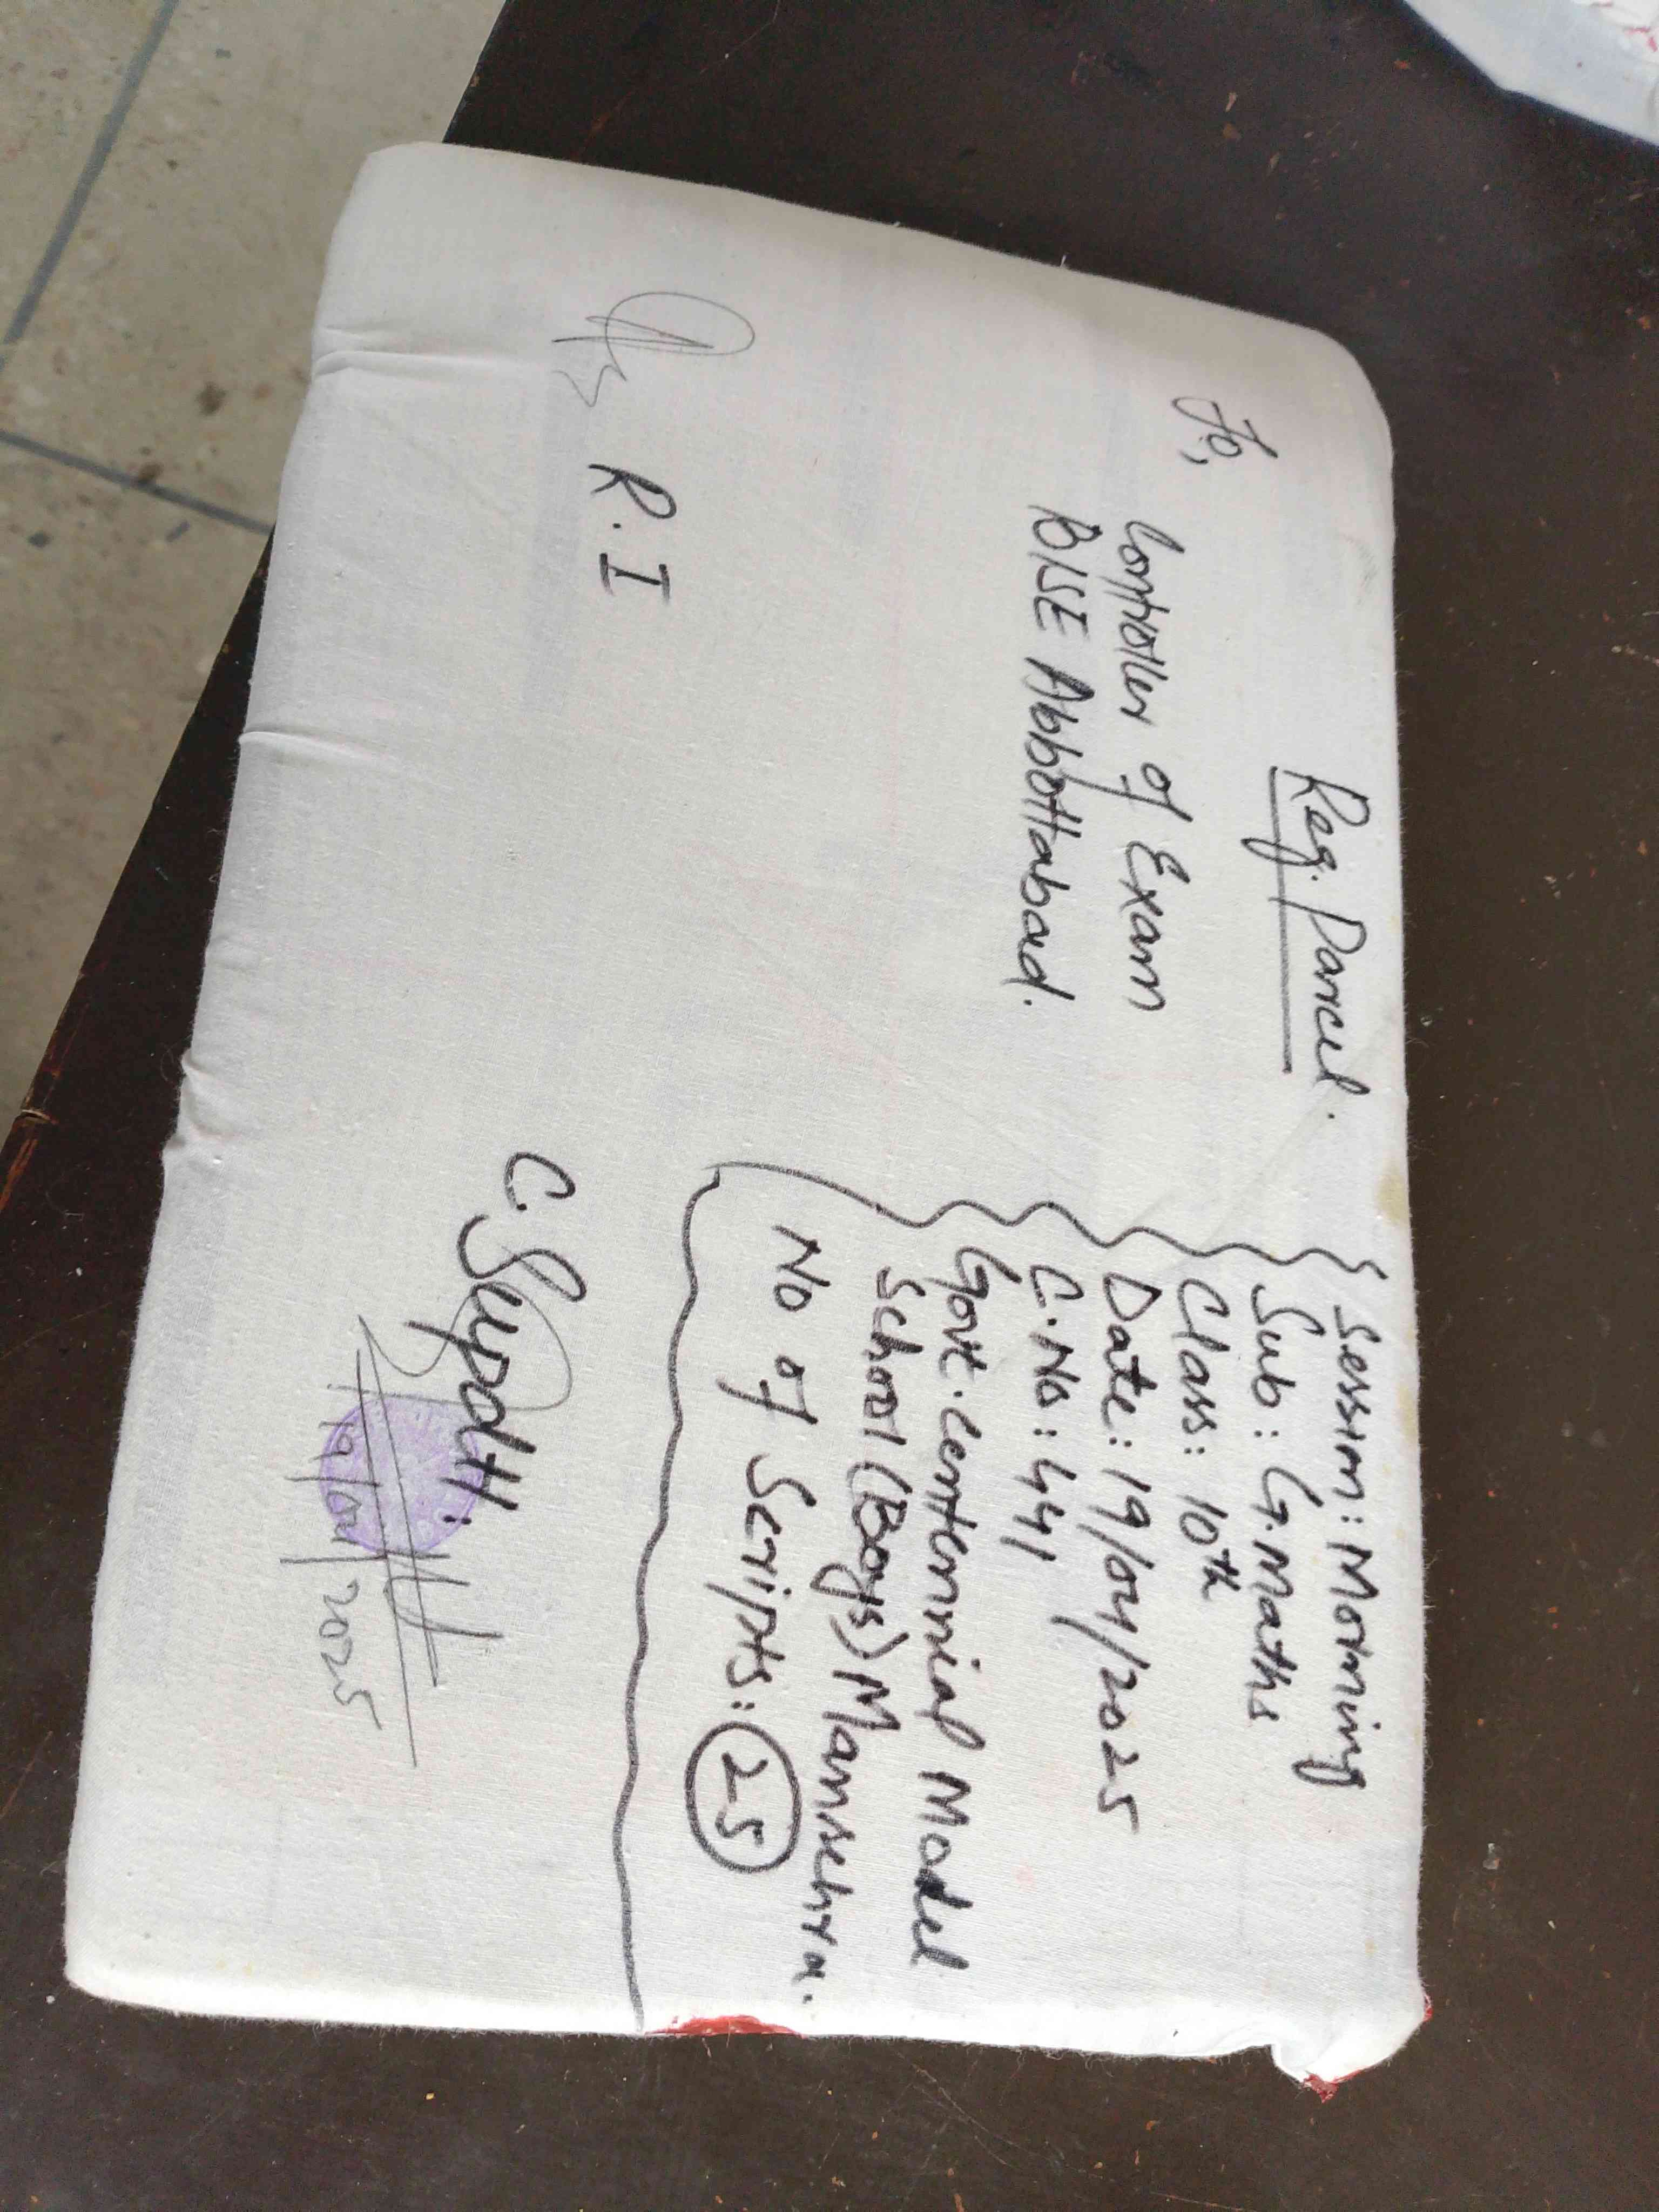 Reg. Parcel.
To,
Controller of Exam
BISE Abbottabad.
Session: Morning
Sub: G.Maths
Class: 10th
Date: 19/04/2025
C.No: 441
Govt. Centennial Model
School (Boys) Mansehra.
No of Scripts: 25
R.I
C.Supdtt.
19/04/2025